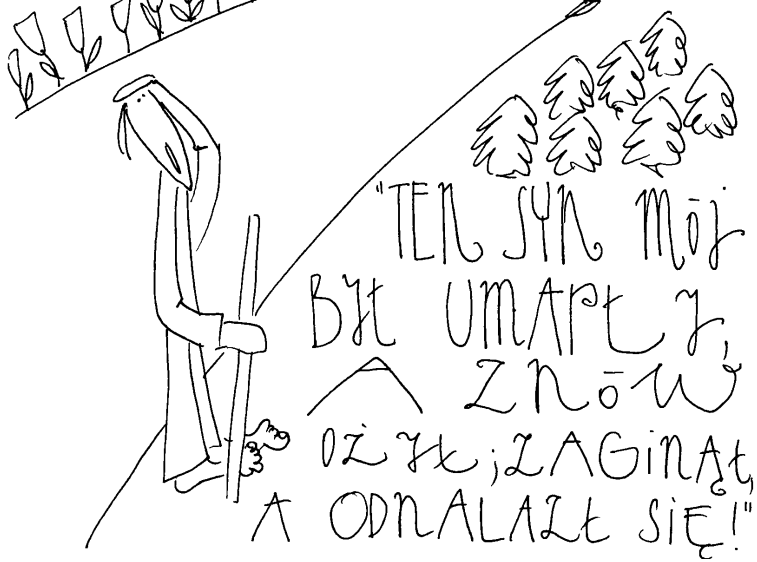 "TEN SYN mōj
BYŁ UMARŁY,
A ZNōW
OŻYŁ; ZAGINĄŁ,
A ODNALAZŁ SIĘ!"